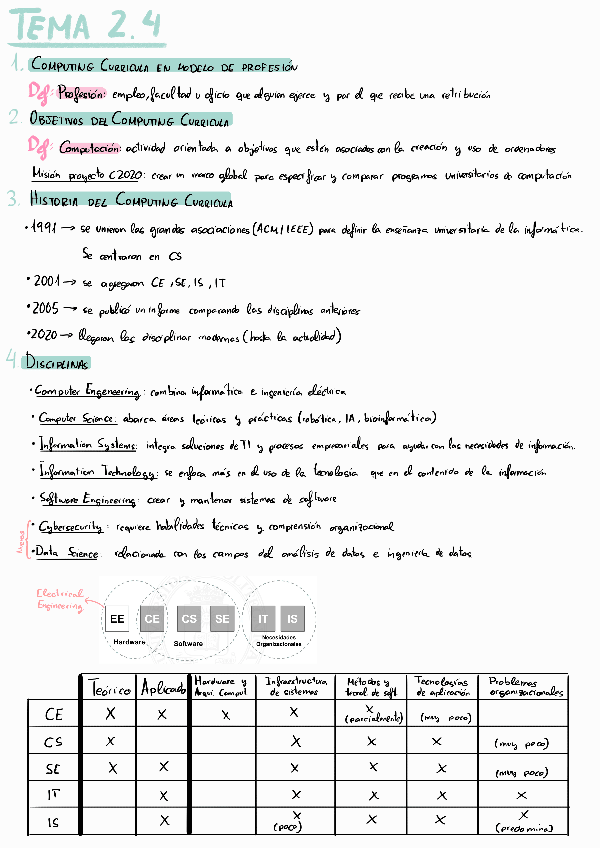 TEMA 2.4
1. COMPUTING CURRICULA EN MODELO DE PROFESIÓN
Def: Profesión: empleo, facultad u oficio que alguien ejerce y por el que recibe una retribución
2. OBJETIVOS DEL COMPUTING CURRICULA
Def: Computación: actividad orientada a objetivos que estén asociados con la creación y uso de ordenadores
Misión proyecto C2020: crear un marco global para especificar y comparar programas universitarios de computación
3. HISTORIA DEL COMPUTING CURRICULA
• 1991 → se unieron las grandes asociaciones (ACM / IEEE) para definir la enseñanza universitaria de la informática.
Se centraron en CS
• 2001 → se agregaron CE, SE, IS, IT
• 2005 → se publicó un informe comparando las disciplinas anteriores
• 2020 → llegaron las disciplinas modernas (hasta la actualidad)
4 DISCIPLINAS
• Computer Engeneering: combina informática e ingeniería eléctrica
• Computer Science: abarca áreas teóricas y prácticas (robótica, IA, bioinformática)
• Information Systems: integra soluciones de TI y procesos empresariales para ayudar con las necesidades de información.
• Information Technology: se enfoca más en el uso de la tecnología que en el contenido de la información
• Software Engineering: crear y mantener sistemas de software
• Cybersecurity: requiere habilidades técnicas y comprensión organizacional
nuevas
• Data Science: relacionada con los campos del análisis de datos e ingeniería de datos
Electrical
Engineering
EE CE CS SE IT IS
Hardware Software Necesidades
Organizacionales
Teórico Aplicado Hardware y Arqui. Comput Infraestructura de sistemas Métodos y tecnol de soft. Tecnologías de aplicación Problemas organizacionales
CE X X X X X (parcialmente) (muy poco)
CS X X X X (muy poco)
SE X X X X X (muy poco)
IT X X X X X
IS X X (poco) X X X (predomina)